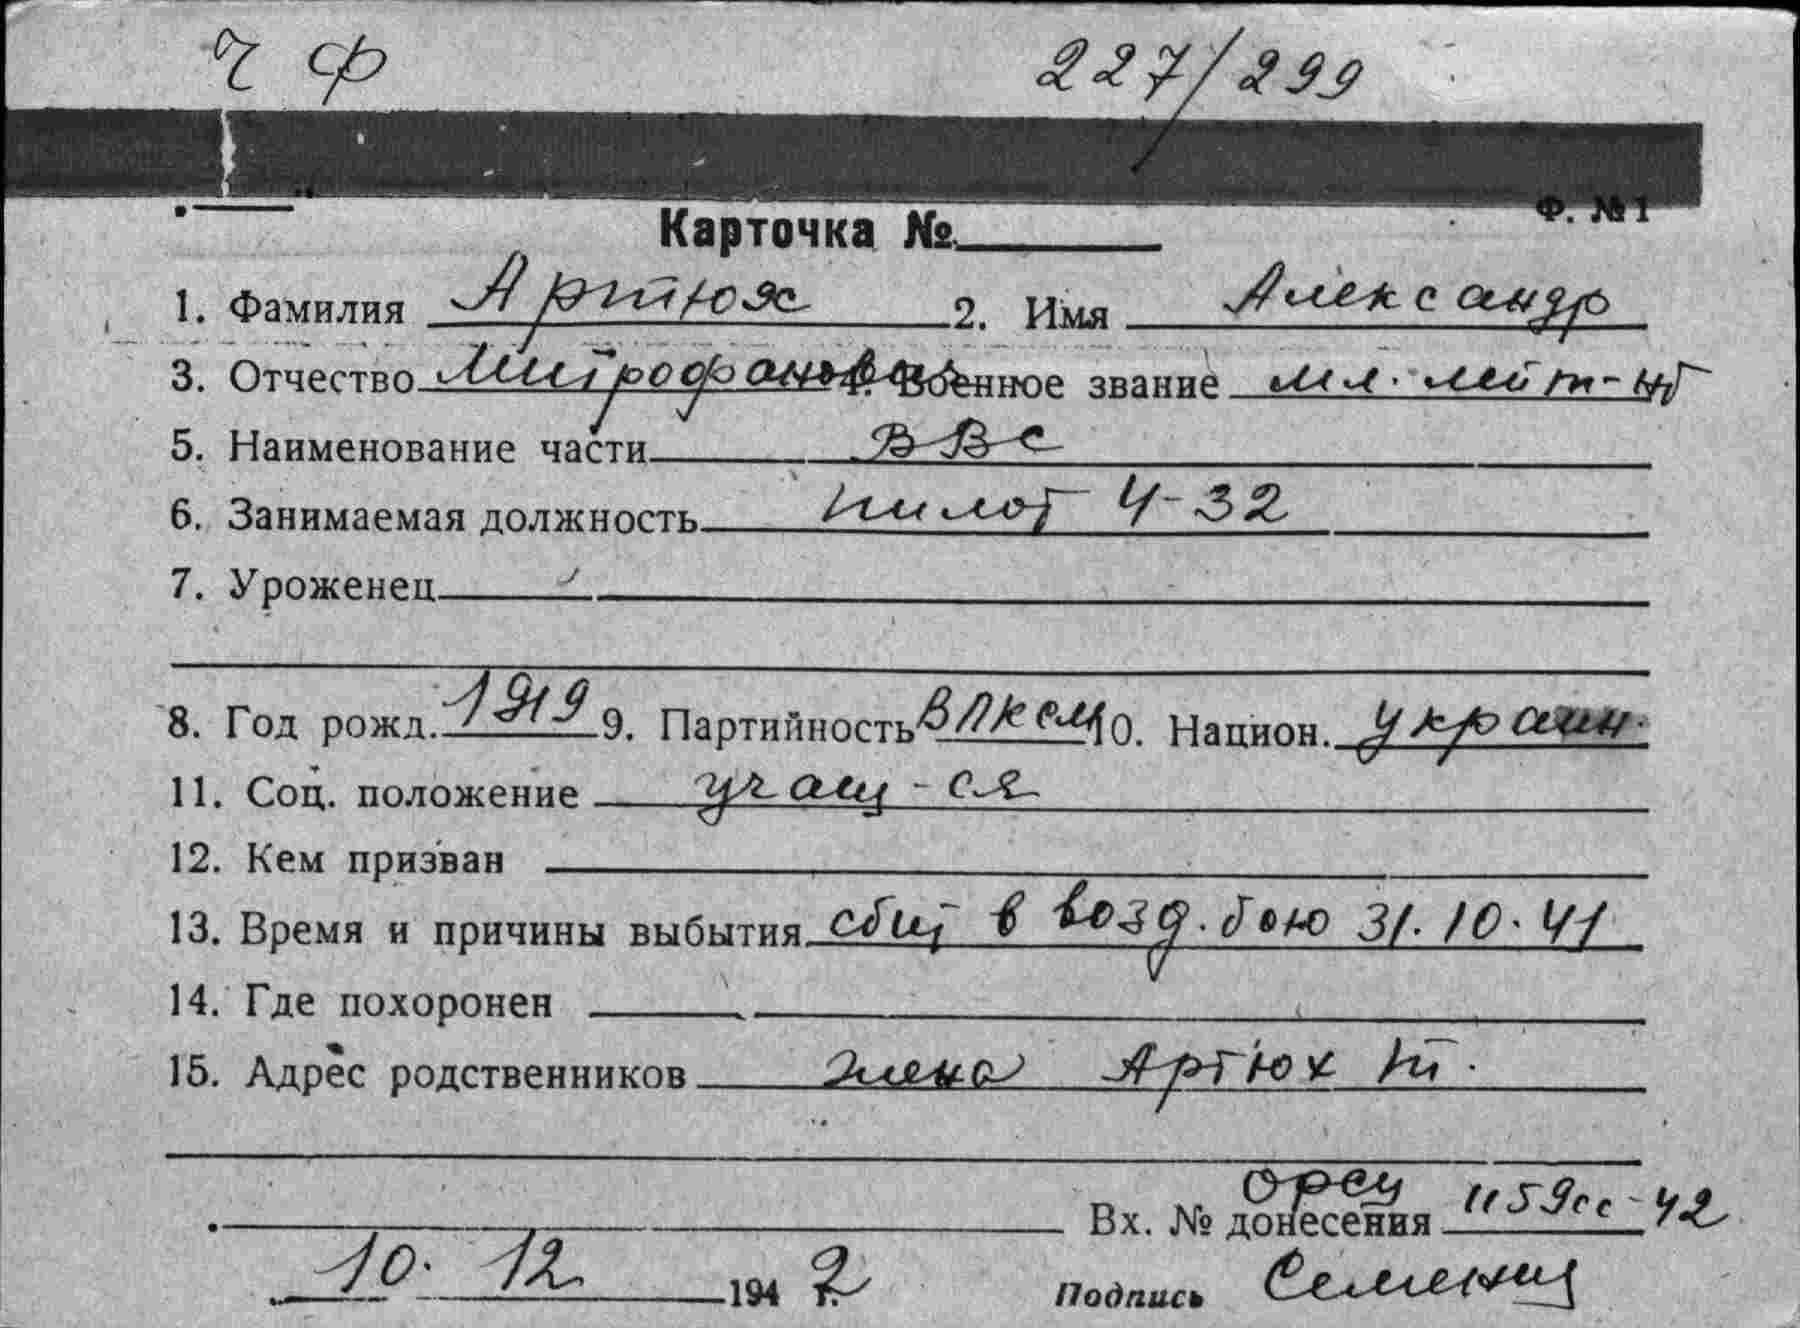 ЧФ 227/299
Ф. №1
Карточка №
1. Фамилия Артюх 2. Имя Александр
3. Отчество Митрофанович 4. Военное звание мл. лейт-нт
5. Наименование части ВВС
6. Занимаемая должность пилот Ч-32
7. Уроженец
8. Год рожд. 1919 9. Партийность ВЛКСМ 10. Национ. украин.
11. Соц. положение учащ-ся
12. Кем призван
13. Время и причины выбытия сбит в возд. бою 31.10.41
14. Где похоронен
15. Адрес родственников жена Артюх
Вх. № донесения 1159сс-42
10. 12 1942 г. Подпись